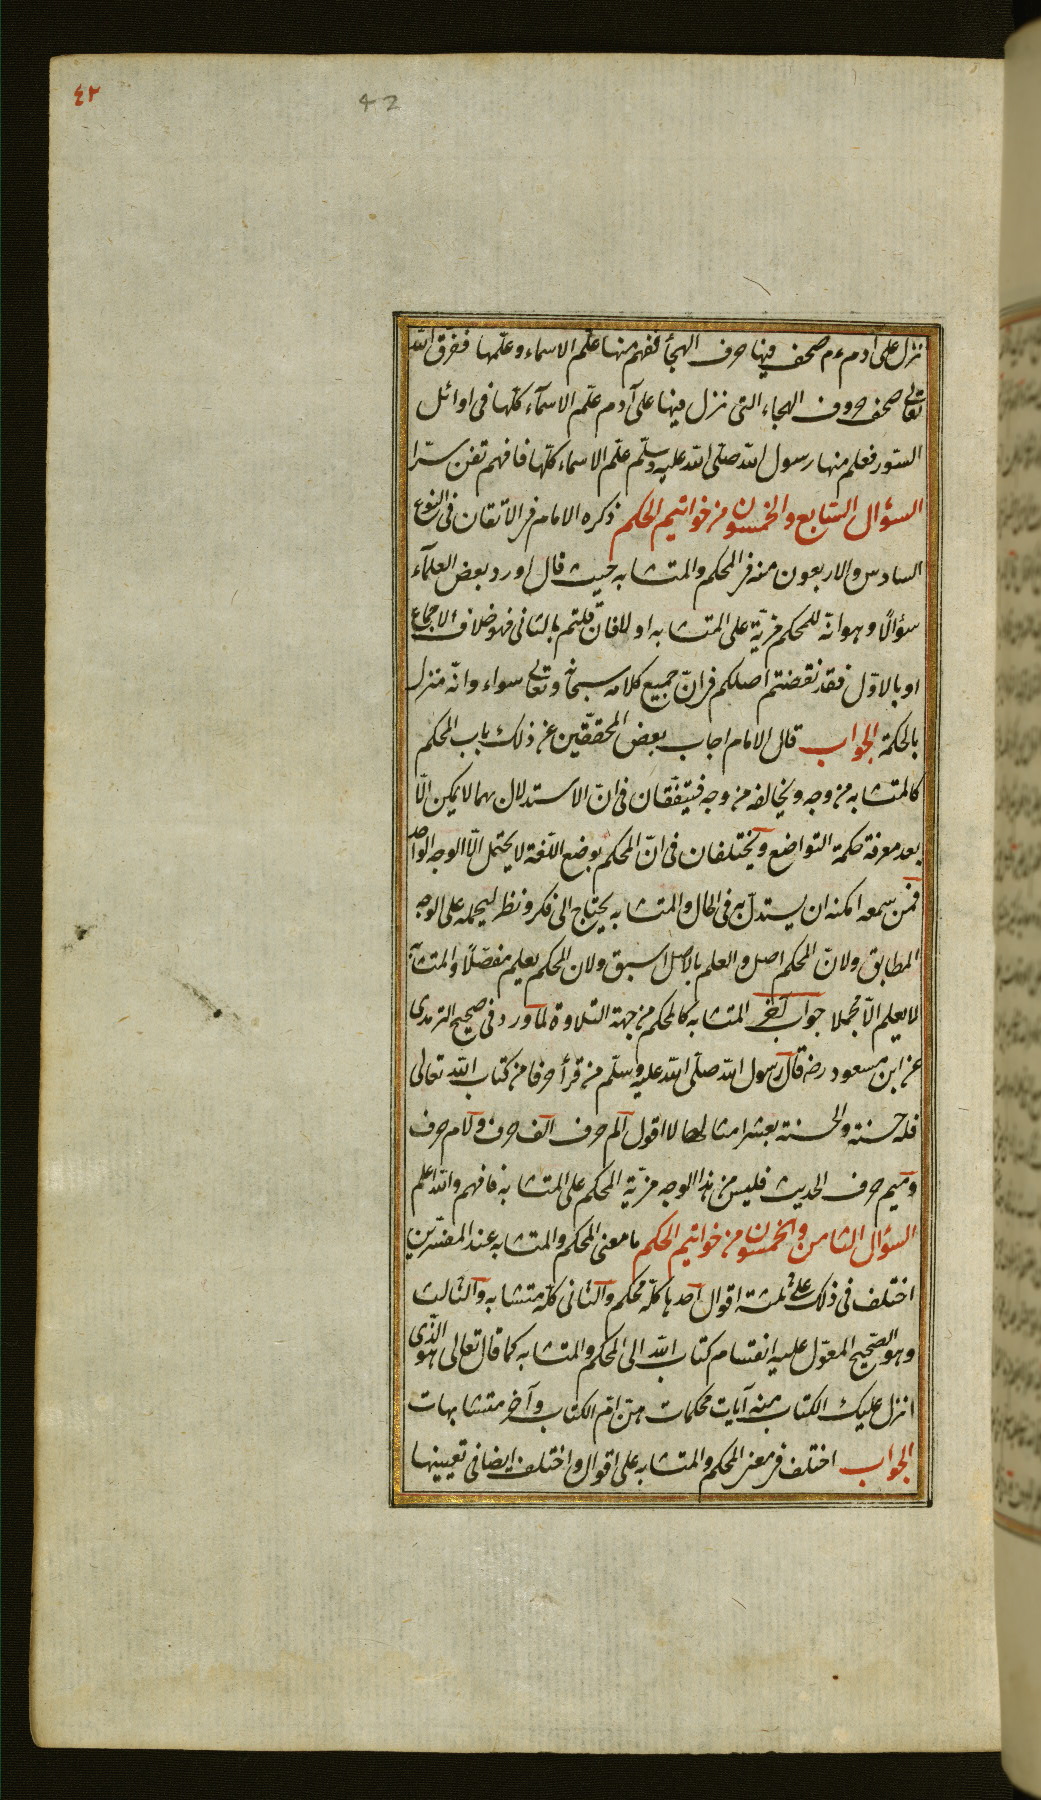 ٤٢
42
نزل على ادم ءم صحف فيها حرف الهجأ ففهم منها علم الاسماء وعلّمها ففرّق الله
تعالى صحف حروف الهجاء التى نزل فيها على آدم علم الاسمآء كلّها فى اوائل
السّور فعلم منها رسول الله صلّى الله عليه وسلّم علّم الاسماء كلّها فافهم تفن سرّا
السؤال السّابع والخمسون من خواتيم الحكم ذكره الامام فى الاتقان فى النوع
السادس والاربعون منه فى المحكم والمتشابه حيث قال اورد بعض العلمآء
سؤالًا وهو انّه للمحكم مزيّة على المتشابه او لا فان قلتم بالثانى فهو خلاف الاجماع
او بالاوّل فقد نقضتم اصلكم فى انّ جميع كلامه سبحانه وتعالى سواء وانّه منزل
بالحكمة الجواب قال الامام اجاب بعض المحقّقين عن ذلك باب المحكم
كالمتشابه من وجه ويخالفه من وجه فيتفّقان فى انّ الاستدلال بهما لا يمكن الّا
بعد معرفة حكمة التواضع ويختلفان فى انّ المحكم بوضع اللّغة لا يحتمل الّا الوجه الواحد
فمن سمعه امكنه ان يستدلّ به فى الحال والمتشابه يحتاج الى فكر ونظر ليحمله على الوجه
المطابق ولانّ المحكم اصل والعلم بالاصل اسبق ولان المحكم يعلم مفصّلًا والمتشابه
لا يعلم الّا مجملا جواب آخر المتشابه كالمحكم من جهة التلاوة لما ورد فى صحيح الترمدى
عن ابن مسعود رضه قال رسول الله صلّى الله عليه وسلّم من قرأ حرفا من كتاب الله تعالى
فله حسنة والحسنة بعشر امثالها لا اقول الم حرف الف حرف ولام حرف
وميم حرف الحديث فليس من هذا الوجه مزيّة المحكم على المتشابه فافهم والله اعلم
السؤال الثامن والخمسون من خواتيم الحكم ما معنى المحكم والمتشابه عند المفسّرين
اختلف فى ذلك على ثلثة اقوال احدها كلّه محكم والثانى كلّه متشابه والثالث
وهو الصّحيح المعوّل عليه انقسام كتاب الله الى المحكم والمتشابه كما قال تعالى هو الذّى
انزل عليك الكتاب منه آيات محكمات هنّ امّ الكتاب وآخر متشابهات
الجواب اختلف فى معنى المحكم والمتشابه على اقوال واختلف ايضا فى تعيينها